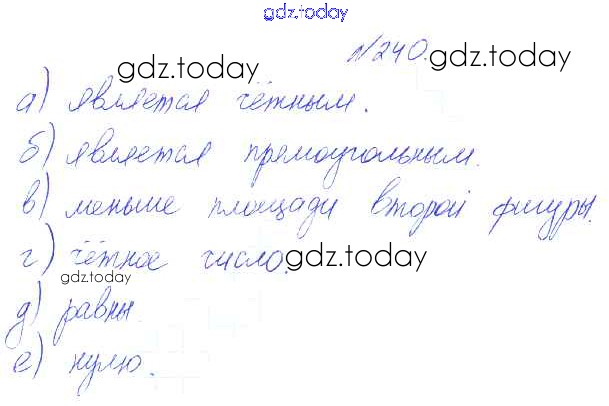 gdz.today
№240.
gdz.today
а) является чётным.
gdz.today
б) является прямоугольным.
gdz.today
в) меньше площади второй фигуры.
г) чётное число.
gdz.today
gdz.today
д) равны.
е) нулю.